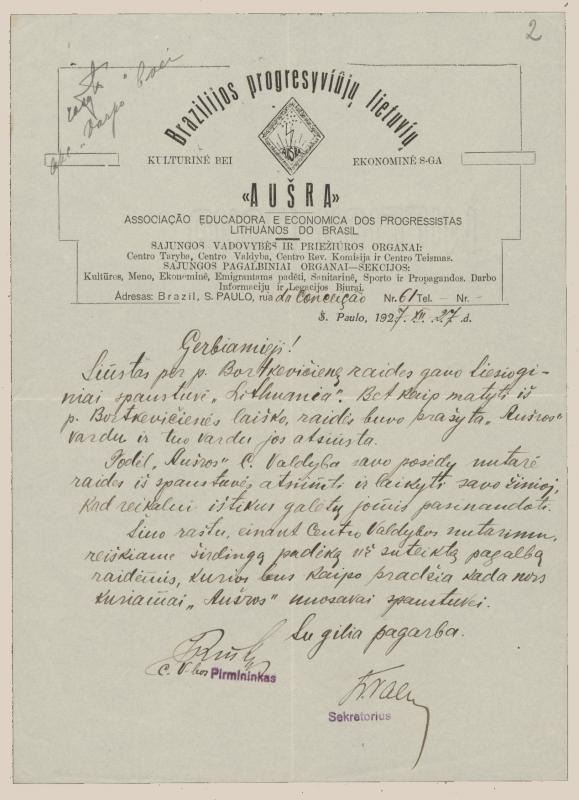 2
"Varpo" Boei
Brazilijos progresyviųjų lietuvių
KULTURINĖ BEI EKONOMINĖ S-GA
«AUŠRA»
ASSOCIAÇÃO EDUCADORA E ECONOMICA DOS PROGRESSISTAS
LITHUANOS DO BRASIL
SAJUNGOS VADOVYBĖS IR PRIEŽIŪROS ORGANAI:
Centro Taryba, Centro Valdyba, Centro Rev. Komisija ir Centro Teismas.
SĄJUNGOS PAGALBINIAI ORGANAI—SEKCIJOS:
Kultūros, Meno, Ekonominė, Emigrantams padėti, Sanitarinė, Sporto ir Propagandos. Darbo
Informacijų ir Legacijos Biurai.
Adresas: Brazil, S. PAULO, rua da Conceição Nr. 61 Tel. — Nr. -
S. Paulo, 1927. XII. 27 d.
Gerbiamieji!
Siūstas per p. Bortkevičienę raides gavo tiesiogi-
niai spaustuvė „Lithuania". Bet kaip matyti iš
p. Bortkevičienės laiško, raidės buvo prašyta „Aušros"
vardu ir tuo vardu jos atsiūsta.
Todėl „Aušros" C. Valdyba savo posėdy nutarė
raides iš spaustuvės atsiimti ir laikyti savo žinioj,
kad reikalui ištikus galėtų jomis pasinaudoti.
Šiuo raštu, einant Centro Valdybos nutarimu,
reiškiame širdingą padėką už suteiktą pagalbą
raidėmis, kurios bus kaipo pradžia kada nors
kuriamai „Aušros" nuosavai spaustuvei.
Su gilia pagarba.
C. V-bos Pirmininkas
Sekretorius